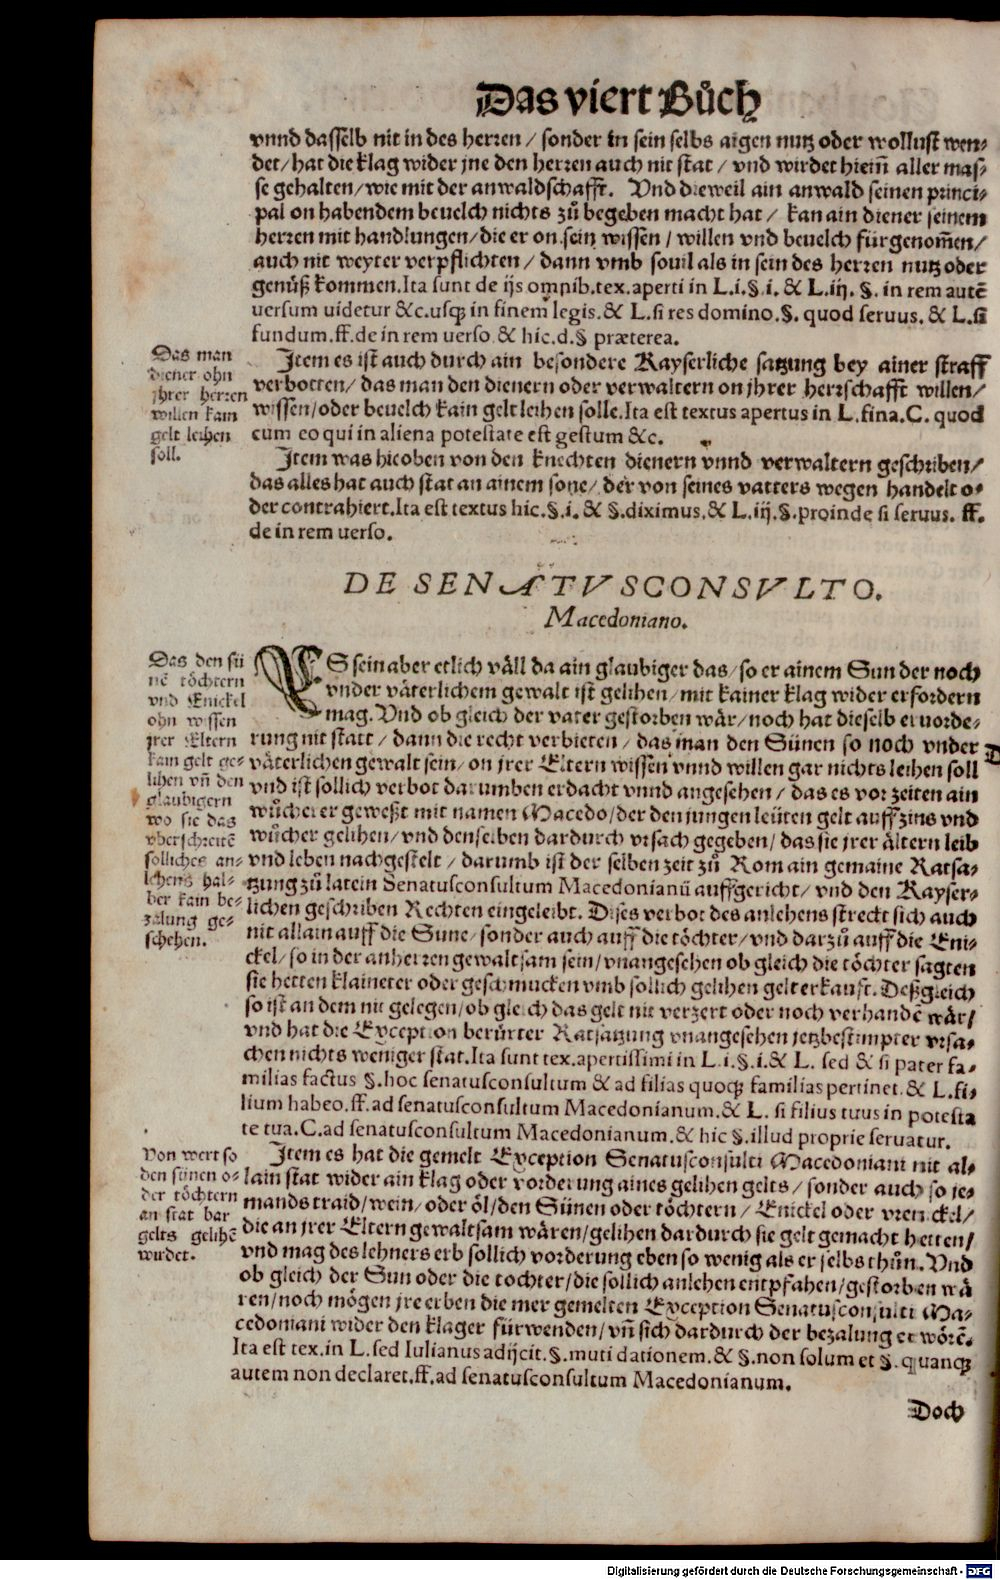 Das viert Bůch
vnnd dasselb nit in des herren / sonder in sein selbs aigen nutz oder wollust wen-
det / hat die klag wider jne den herren auch nit stat / vnd wirdet hieiñ aller mas-
se gehalten / wie mit der anwaldschafft. Vnd dieweil ain anwald seinen princi-
pal on habendem beuelch nichts zů begeben macht hat / kan ain diener seinem
herren mit handlungen / die er on sein wissen / willen vnd beuelch fürgenom̃en /
auch nit weyter verpflichten / dann vmb souil als in sein des herren nutz oder
genůß kommen. Ita sunt de ijs omnib. tex. aperti in L. i. §. i. & L. iij. §. in rem autē
uersum uidetur &c. usq; in finem legis. & L. si res domino. §. quod seruus. & L. si
fundum. ff. de in rem uerso. & hic. d. § præterea.
Das man
diener ohn
jhrer herren
willen kain
gelt leihen
soll.
Item es ist auch durch ain besondere Kayserliche satzung bey ainer straff
verbotten / das man den dienern oder verwaltern on jhrer herrschafft willen /
wissen / oder beuelch kain gelt leihen solle. Ita est textus apertus in L. fina. C. quod
cum eo qui in aliena potestate est gestum &c.
Item was hieoben von den knechten dienern vnnd verwaltern geschriben /
das alles hat auch stat an ainem sone / der von seines vatters wegen handelt o-
der contrahiert. Ita est textus hic. §. i. & §. diximus. & L. iij. §. proinde si seruus. ff.
de in rem uerso.
DE SENATVSCONSVLTO.
Macedoniano.
Das den sü
nē töchtern
vnd Enickel
ohn wissen
jrer Eltern
kain gelt ge-
lihen vñ den
glaubigern
wo sie das
vberschreitē
solliches an-
lehens hal-
ber kain be-
zalung ge-
schehen.
ES sein aber etlich väll da ain glaubiger das / so er ainem Sun der noch
vnder väterlichem gewalt ist gelihen / mit kainer klag wider erfordern
mag. Vnd ob gleich der vater gestorben wär / noch hat dieselb eruorde-
rung nit statt / dann die recht verbieten / das man den Sünen so noch vnder
väterlichen gewalt sein / on jrer Eltern wissen vnnd willen gar nichts leihen soll
vnd ist sollich verbot darumben erdacht vnnd angesehen / das es vor zeiten ain
wůcherer geweßt mit namen Macedo / der den jungen leüten gelt auff zins vnd
wůcher gelihen / vnd denselben dardurch vrsach gegeben / das sie jrer ältern leib
vnd leben nachgestelt / darumb ist der selben zeit zů Rom ain gemaine Ratsa-
tzung zů latein Senatusconsultum Macedonianū auffgericht / vnd den Kayser-
lichen geschriben Rechten eingeleibt. Dises verbot des anlehens streckt sich auch
nit allain auff die Süne / sonder auch auff die töchter / vnd darzů auff die Eni-
ckel / so in der anherren gewaltsam sein / vnangesehen ob gleich die töchter sagten
sie hetten klaineter oder geschmucken vmb sollich gelihen gelt erkauft. Deßgleich
so ist an dem nit gelegen / ob gleich das gelt nit verzert oder noch verhandē wär /
vnd hat die Exception berürter Ratsatzung vnangesehen jetzbestimpter vrsa-
chen nichts weniger stat. Ita sunt tex. apertissimi in L. i. §. i. & L. sed & si pater fa-
milias factus §. hoc senatusconsultum & ad filias quoq; familias pertinet. & L. fi-
lium habeo. ff. ad senatusconsultum Macedonianum. & L. si filius tuus in potesta
te tua. C. ad senatusconsultum Macedonianum. & hic §. illud proprie seruatur.
Von wert so
den sünen o-
der töchtern
an stat bar
gelts gelihē
wirdet.
Item es hat die gemelt Exception Senatusconsulti Macedoniani nit al-
lain stat wider ain klag oder vorderung aines gelihen gelts / sonder auch so je-
mands traid / wein / oder öl / den Sünen oder töchtern / Enickel oder vrenickel /
die an jrer Eltern gewaltsam wären / gelihen dardurch sie gelt gemacht hetten /
vnd mag des lehners erb sollich vorderung eben so wenig als er selbs thůn. Vnd
ob gleich der Sun oder die tochter / die sollich anlehen entpfahen / gestorben wä
ren / noch mögen jre erben die mer gemelten Exception Senatusconsulti Ma-
cedoniani wider den klager fürwenden / vñ sich dardurch der bezalung erwörē.
Ita est tex. in L. sed Iulianus adijcit. §. muti dationem. & §. non solum et §. quanq;
autem non declaret. ff. ad senatusconsultum Macedonianum.
Doch
Digitalisierung gefördert durch die Deutsche Forschungsgemeinschaft - DFG